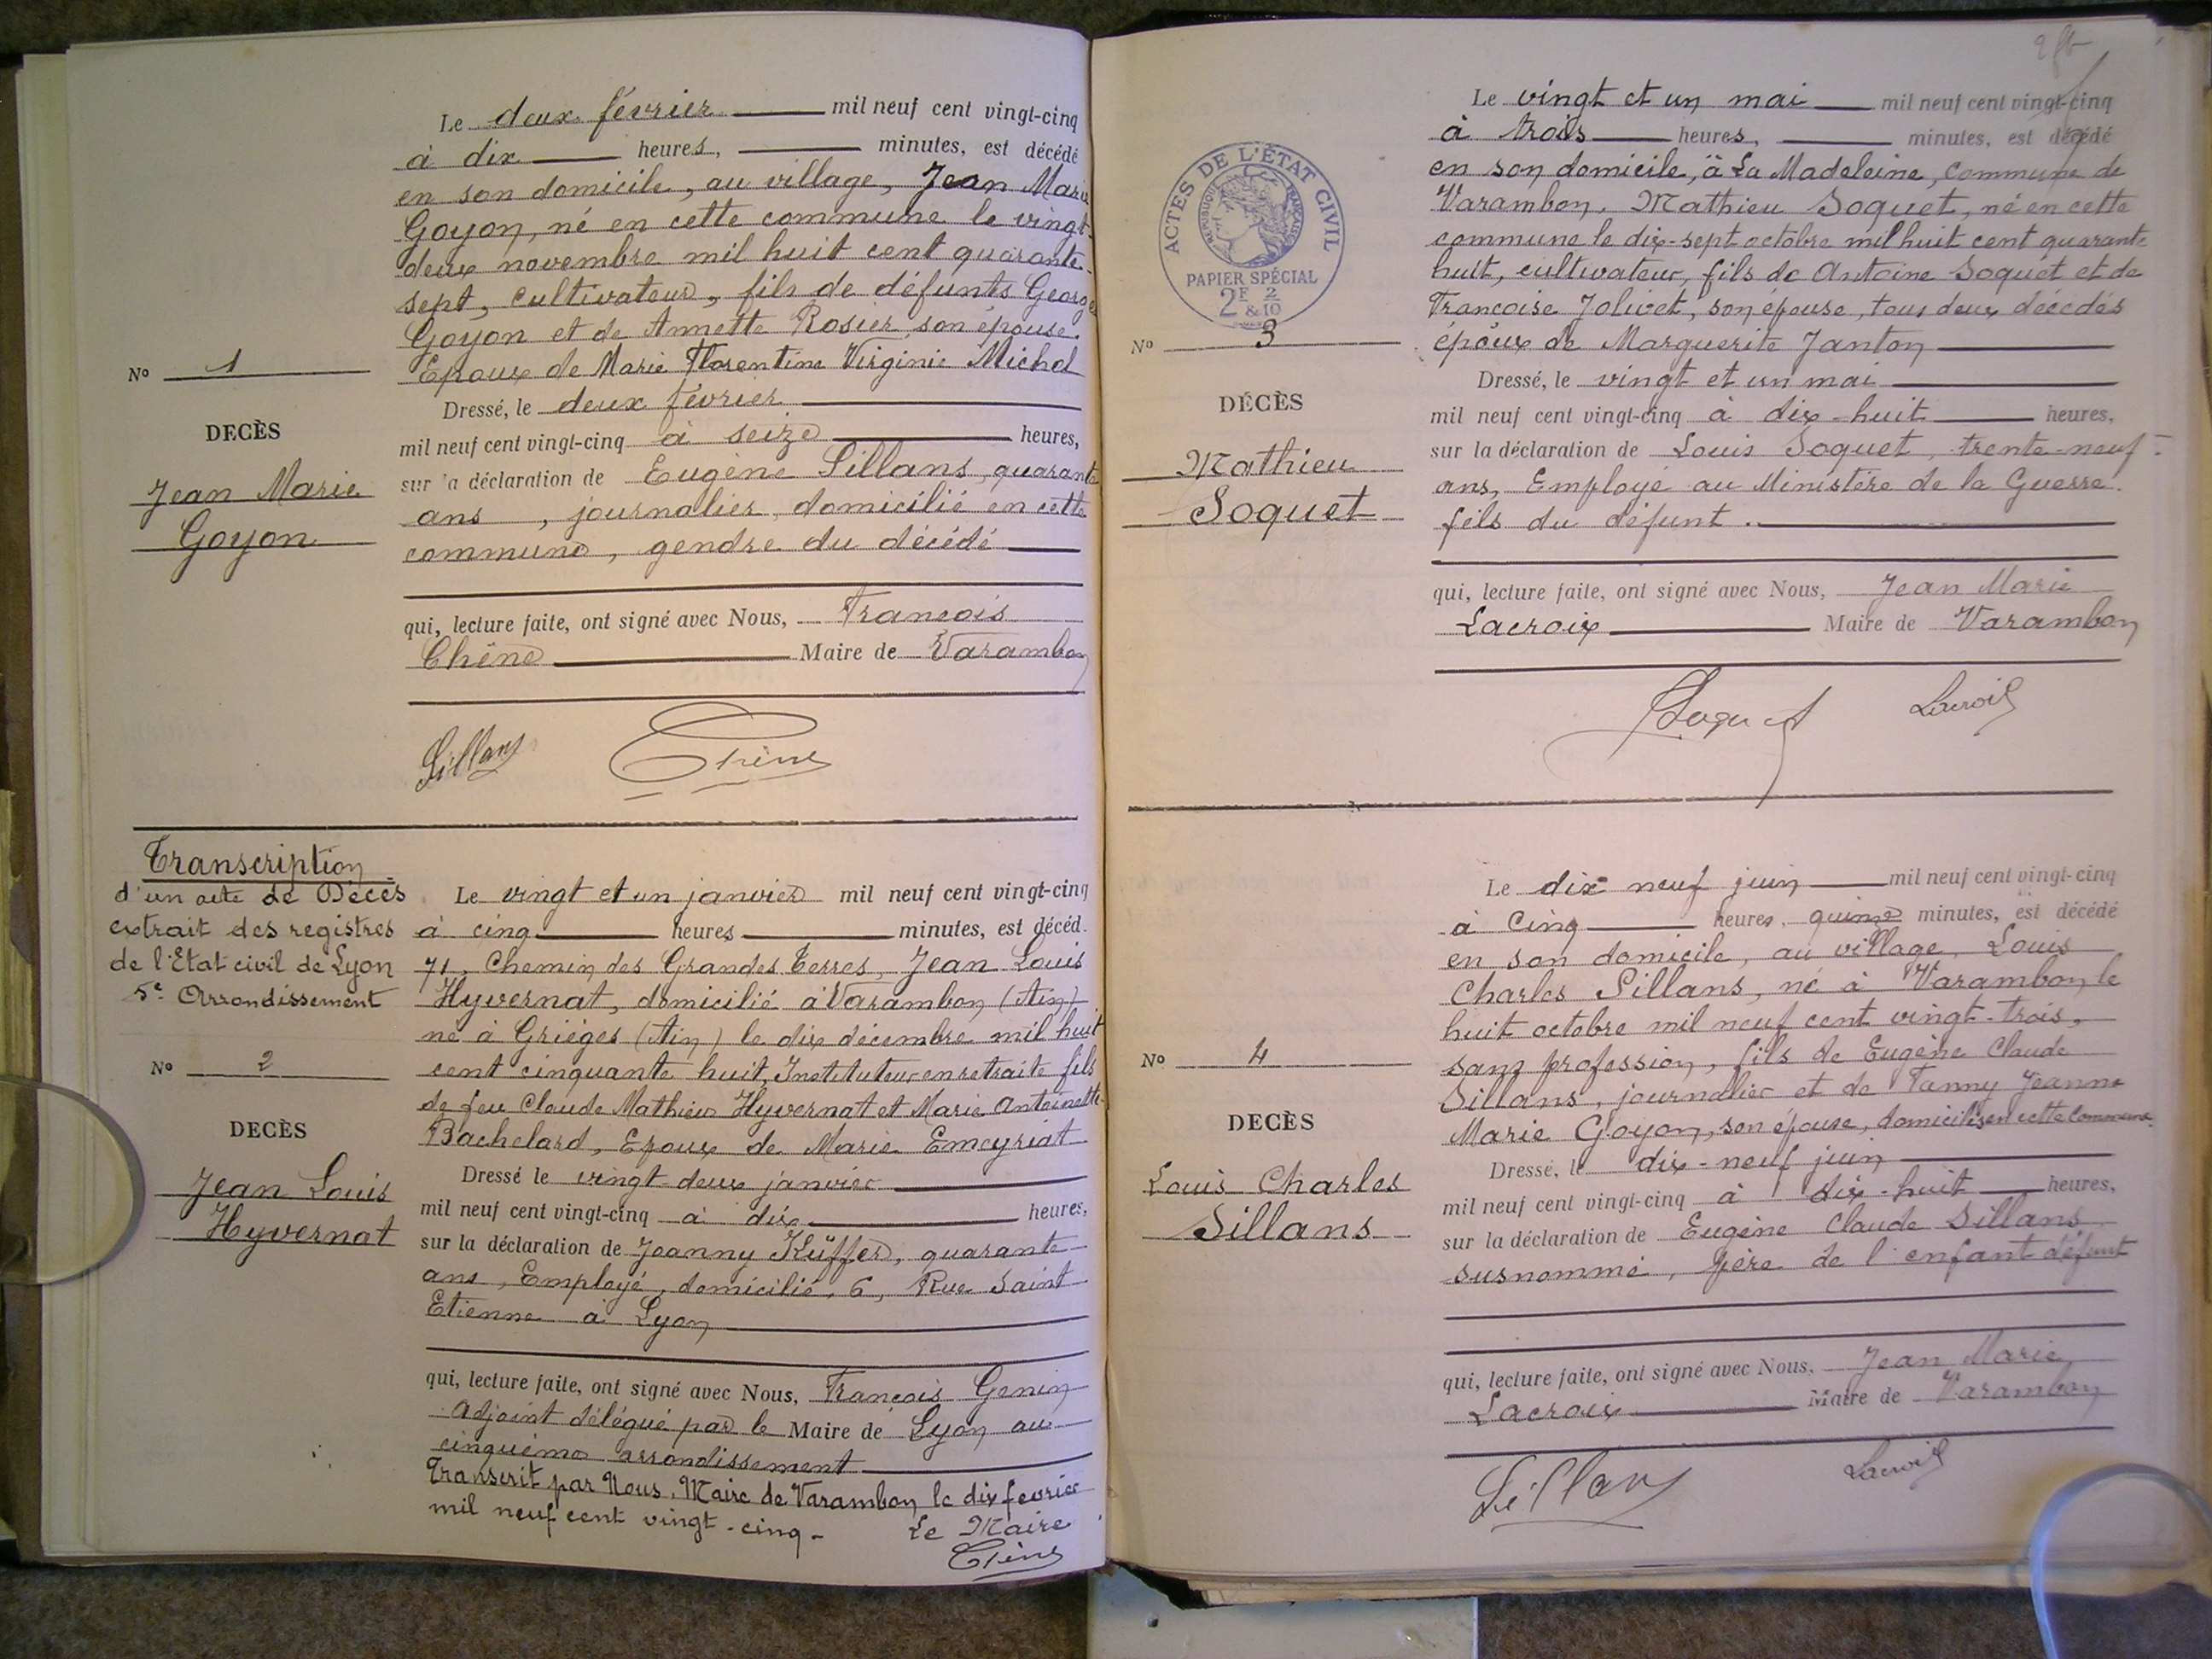 Le deux février mil neuf cent vingt-cinq
à dix heures, minutes, est décédé
en son domicile, au village, Jean Marie
Goyon, né en cette commune le vingt-
deux novembre mil huit cent quarante-
sept, cultivateur, fils de défunts George
Goyon et de Annette Rosier, son épouse.
Epoux de Marie Florentine Virginie Michel
Nº 1
Dressé, le deux février
DECÈS
mil neuf cent vingt-cinq à seize heures,
Jean Marie
Goyon
sur la déclaration de Eugène Sillans, quarante
ans, journalier, domicilié en cette
commune, gendre du décédé
qui, lecture faite, ont signé avec Nous, François
Chêne Maire de Varambon
Sillans Chêne
Transcription
d'un acte de Décès
extrait des registres
de l'Etat civil de Lyon
5e Arrondissement
Nº 2
DECÈS
Jean Louis
Hyvernat
Le vingt et un janvier mil neuf cent vingt-cinq
à cinq heures minutes, est décéd.
71, Chemin des Grandes Terres, Jean Louis
Hyvernat, domicilié à Varambon (Ain)
né à Grièges (Ain) le dix décembre mil huit
cent cinquante huit, Instituteur en retraite fils
de feu Claude Mathieu Hyvernat et Marie Antoinette
Bachelard, Epoux de Marie Emeyriat
Dressé le vingt-deux janvier
mil neuf cent vingt-cinq à dix heures,
sur la déclaration de Jeanny Küffer, quarante
ans, Employé, domicilié, 6, Rue Saint
Etienne à Lyon
qui, lecture faite, ont signé avec Nous, François Genin
adjoint délégué par le Maire de Lyon au
cinquième arrondissement
Transcrit par Nous, Maire de Varambon le dix fevrier
mil neuf cent vingt-cinq - Le Maire
Chêne
Le vingt et un mai mil neuf cent vingt-cinq
à trois heures, minutes, est décédé
en son domicile, à La Madeleine, commune de
Varambon, Mathieu Soquet, né en cette
commune le dix-sept octobre mil huit cent quarante
huit, cultivateur, fils de Antoine Soquet et de
Françoise Jolivet, son épouse, tous deux décédés
époux de Marguerite Janton
ACTES DE L'ÉTAT CIVIL
RÉPUBLIQUE FRANÇAISE
PAPIER SPÉCIAL
2F & 2/10
Nº 3
DÉCÈS
Mathieu
Soquet
Dressé, le vingt et un mai
mil neuf cent vingt-cinq à dix-huit heures,
sur la déclaration de Louis Soquet, trente-neuf
ans, Employé au Ministère de la Guerre.
fils du défunt.
qui, lecture faite, ont signé avec Nous, Jean Marie
Lacroix Maire de Varambon
Soquet Lacroix
Le dix neuf juin mil neuf cent vingt-cinq
à cinq heures, quinze minutes, est décédé
en son domicile, au village, Louis
Charles Sillans, né à Varambon, le
huit octobre mil neuf cent vingt-trois,
sans profession, fils de Eugène Claude
Sillans, journalier et de Fanny Jeanne
Marie Goyon, son épouse, domiciliés en cette commune.
Nº 4
DECÈS
Louis Charles
Sillans
Dressé, le dix-neuf juin
mil neuf cent vingt-cinq à dix-huit heures,
sur la déclaration de Eugène Claude Sillans
susnommé, père de l'enfant défunt
qui, lecture faite, ont signé avec Nous, Jean Marie
Lacroix Maire de Varambon
Sillans Lacroix